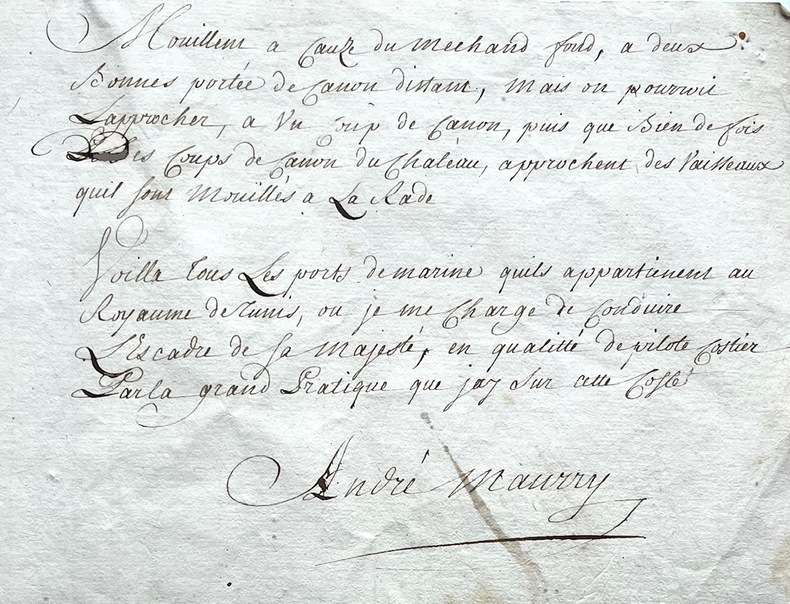 Mouillent a Cauze du mechand fond, a deux
Bonnes portée de Canon distant, mais on pourroit
Lapprocher, a Vn Coup de Canon, puis que Bien de fois
Des Coups de Canon du Chateau, approchent des Vaisseaux
quil sont Mouillés a La Rade
Voilla Tous Les ports de marine quils appartienent au
Royaume de Tunis, ou je me Charge de Conduire
L'Escadre de sa Majesté, en qualitté de pilote Costier
Par la grand Pratique que jay Sur cette Coste
André Maurry